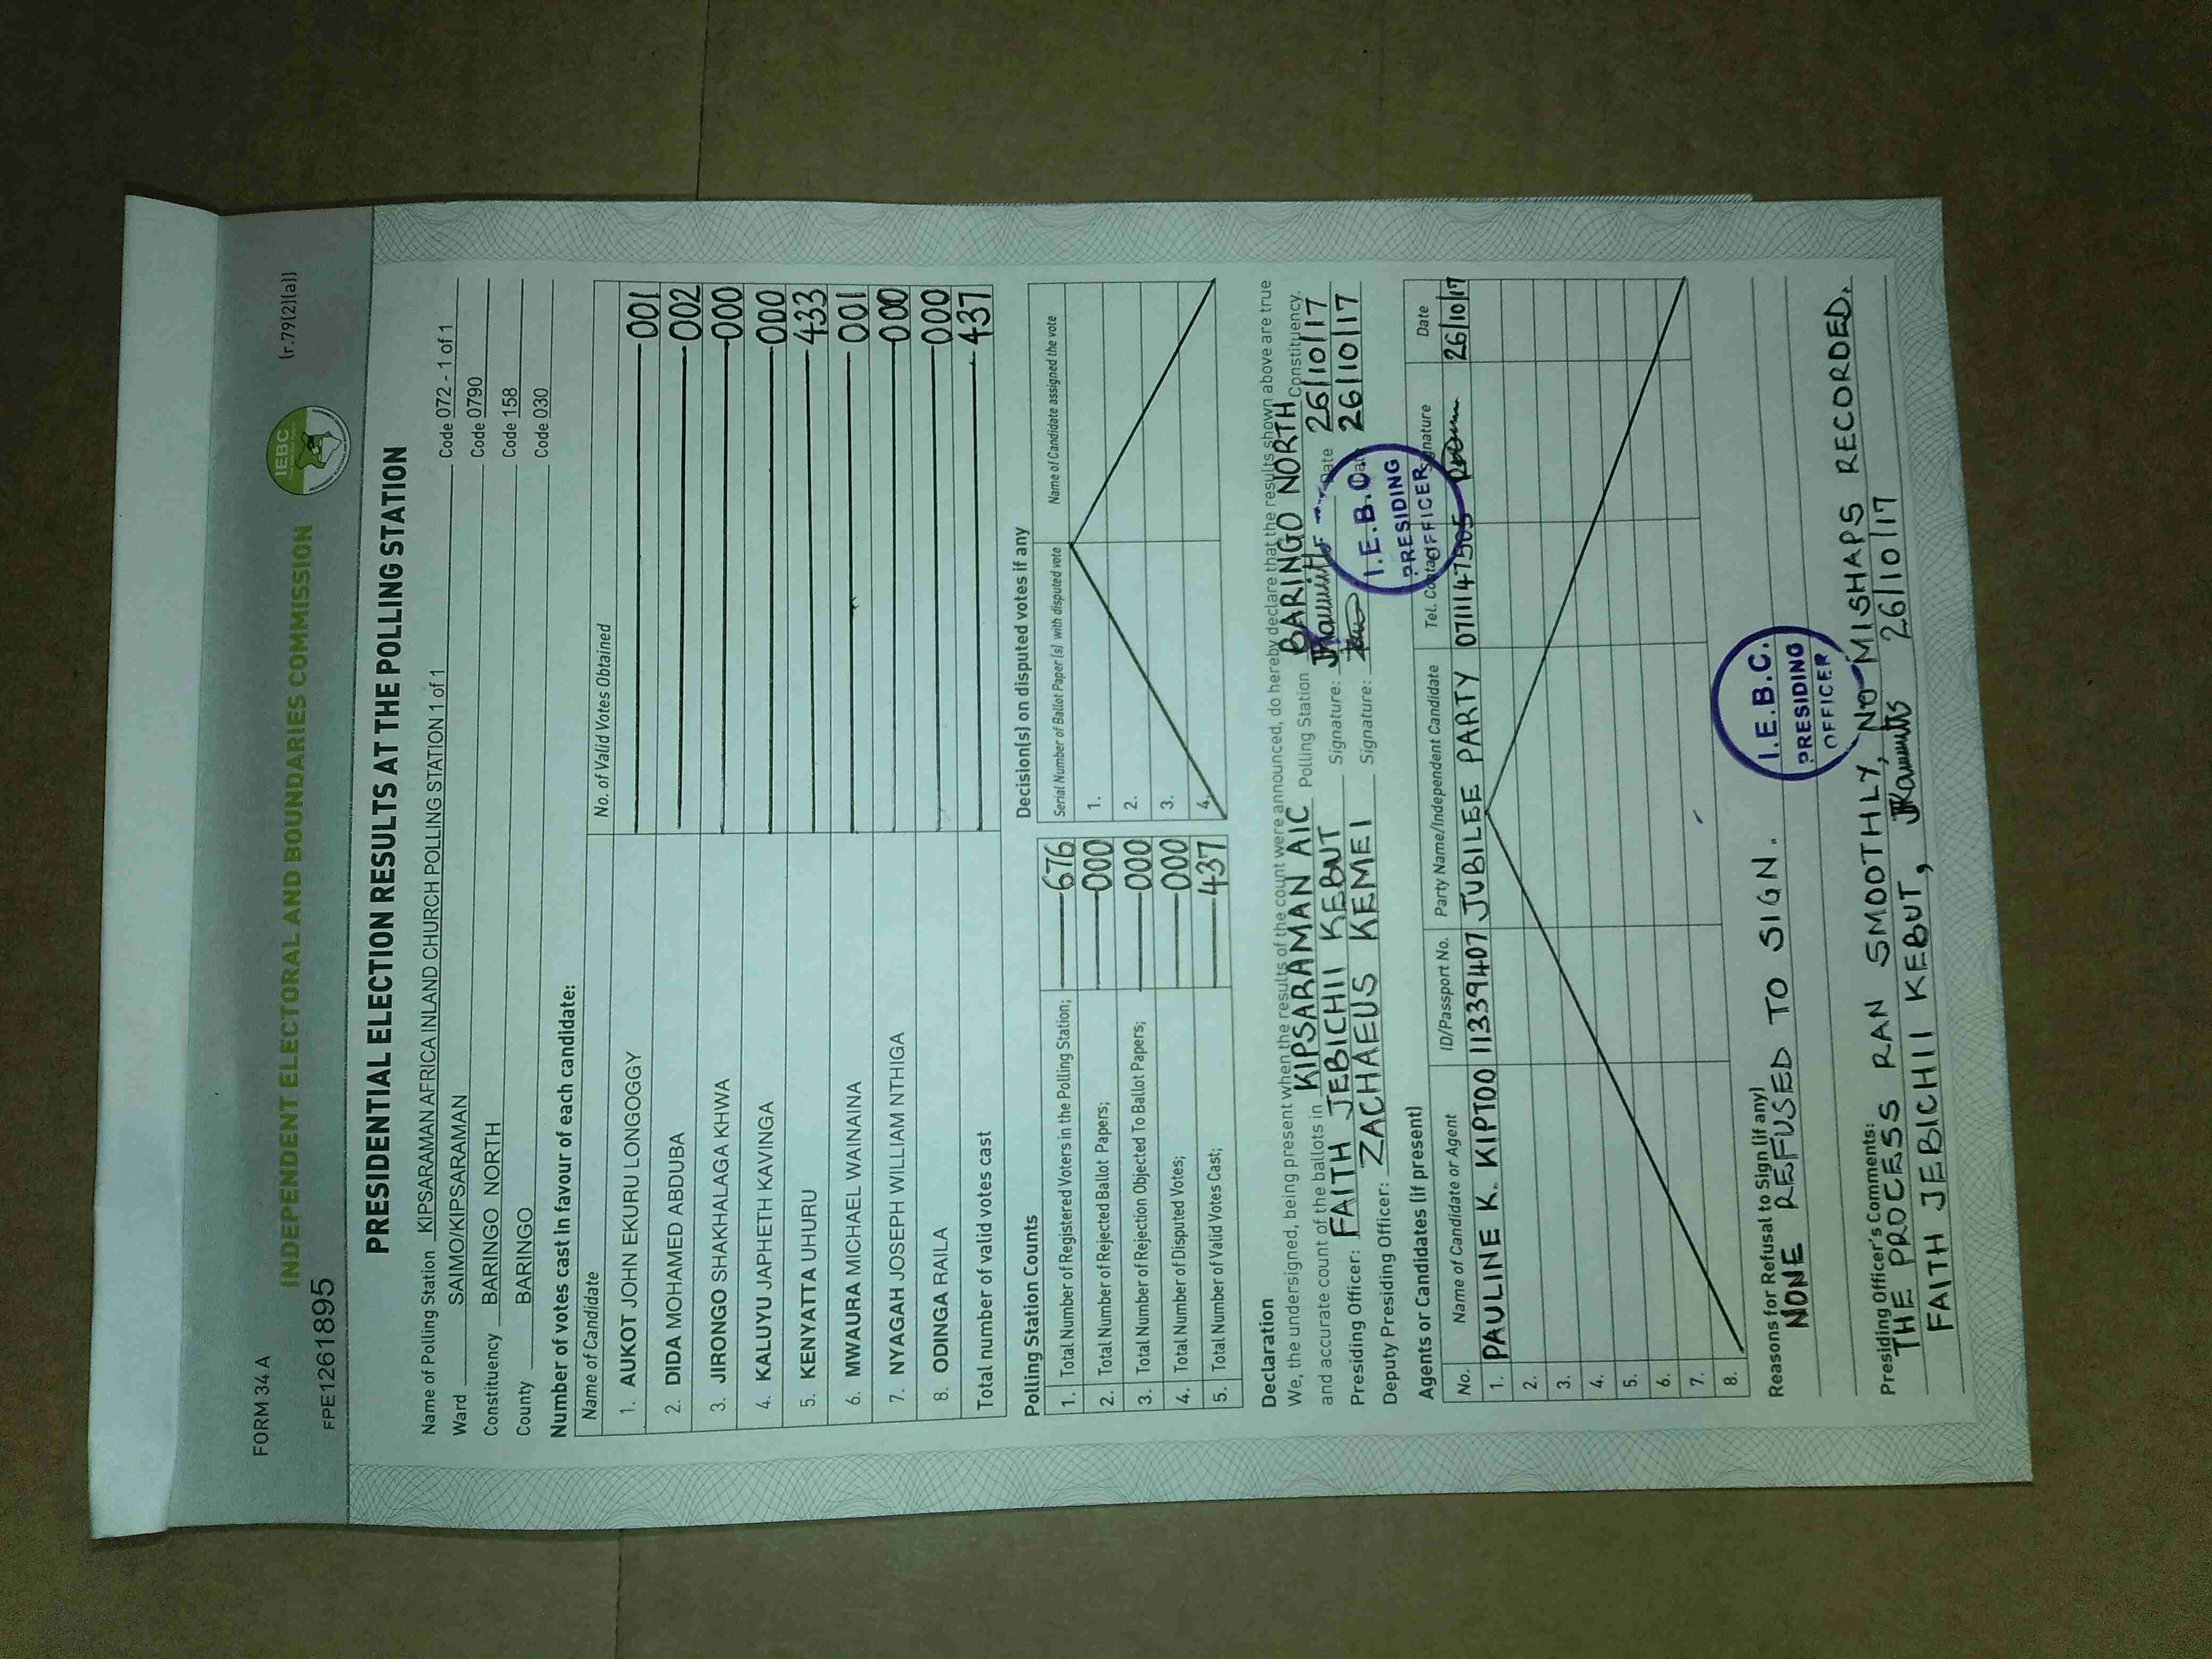 FORM 34 A
INDEPENDENT ELECTORAL AND BOUNDARIES COMMISSION
IEBC
(r.79(2)(a))
FPE12611895
PRESIDENTIAL ELECTION RESULTS AT THE POLLING STATION
Name of Polling Station KIPSARAMAN AFRICA INLAND CHURCH POLLING STATION 1 of 1 Code 072 - 1 of 1
Ward SAIMO/KIPSARAMAN Code 0790
Constituency BARINGO NORTH Code 158
County BARINGO Code 030
Number of votes cast in favour of each candidate:
Name of Candidate No. of Valid Votes Obtained
1. AUKOT JOHN EKURU LONGOGGY 001
2. DIDA MOHAMED ABDUBA 002
3. JIRONGO SHAKHALAGA KHWA 000
4. KALUYU JAPHETH KAVINGA 000
5. KENYATTA UHURU 433
6. MWAURA MICHAEL WAINAINA 001
7. NYAGAH JOSEPH WILLIAM NTHIGA 000
8. ODINGA RAILA 000
Total number of valid votes cast 437
Polling Station Counts
1. Total Number of Registered Voters in the Polling Station; 676
2. Total Number of Rejected Ballot Papers; 000
3. Total Number of Rejection Objected To Ballot Papers; 000
4. Total Number of Disputed Votes; 000
5. Total Number of Valid Votes Cast; 437
Decision(s) on disputed votes if any
Serial Number of Ballot Paper (s) with disputed vote Name of Candidate assigned the vote
1.
2.
3.
4.
Declaration
We, the undersigned, being present when the results of the count were announced, do hereby declare that the results shown above are true
and accurate count of the ballots in KIPSARAMAN AIC Polling Station BARINGO NORTH Constituency.
Presiding Officer: FAITH JEBICHII KEBUT Signature: Date 26/10/17
Deputy Presiding Officer: ZACHAEUS KEMEI Signature: Date 26/10/17
I.E.B.C.
PRESIDING
OFFICER
Agents or Candidates (if present)
No. Name of Candidate or Agent ID/Passport No. Party Name/Independent Candidate Tel. Contact Signature Date
1. PAULINE K. KIPTOO 11339407 JUBILEE PARTY 0711147505 26/10/17
2.
3.
4.
5.
6.
7.
8.
Reasons for Refusal to Sign (if any)
NONE REFUSED TO SIGN.
I.E.B.C.
PRESIDING
OFFICER
Presiding Officer's Comments:
THE PROCESS RAN SMOOTHLY, NO MISHAPS RECORDED.
FAITH JEBICHII KEBUT, 26/10/17